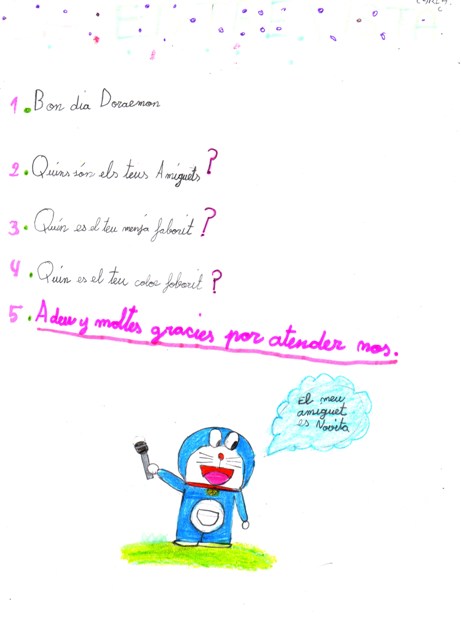 1. Bon dia Doraemon
2. Quins són els teus Amiguets?
3. Quin es el teu menja faborit?
4. Quin es el teu coloe foborit?
5. Adeu y moltes gracies por atender nos.
El meu
amiguet
es Novita